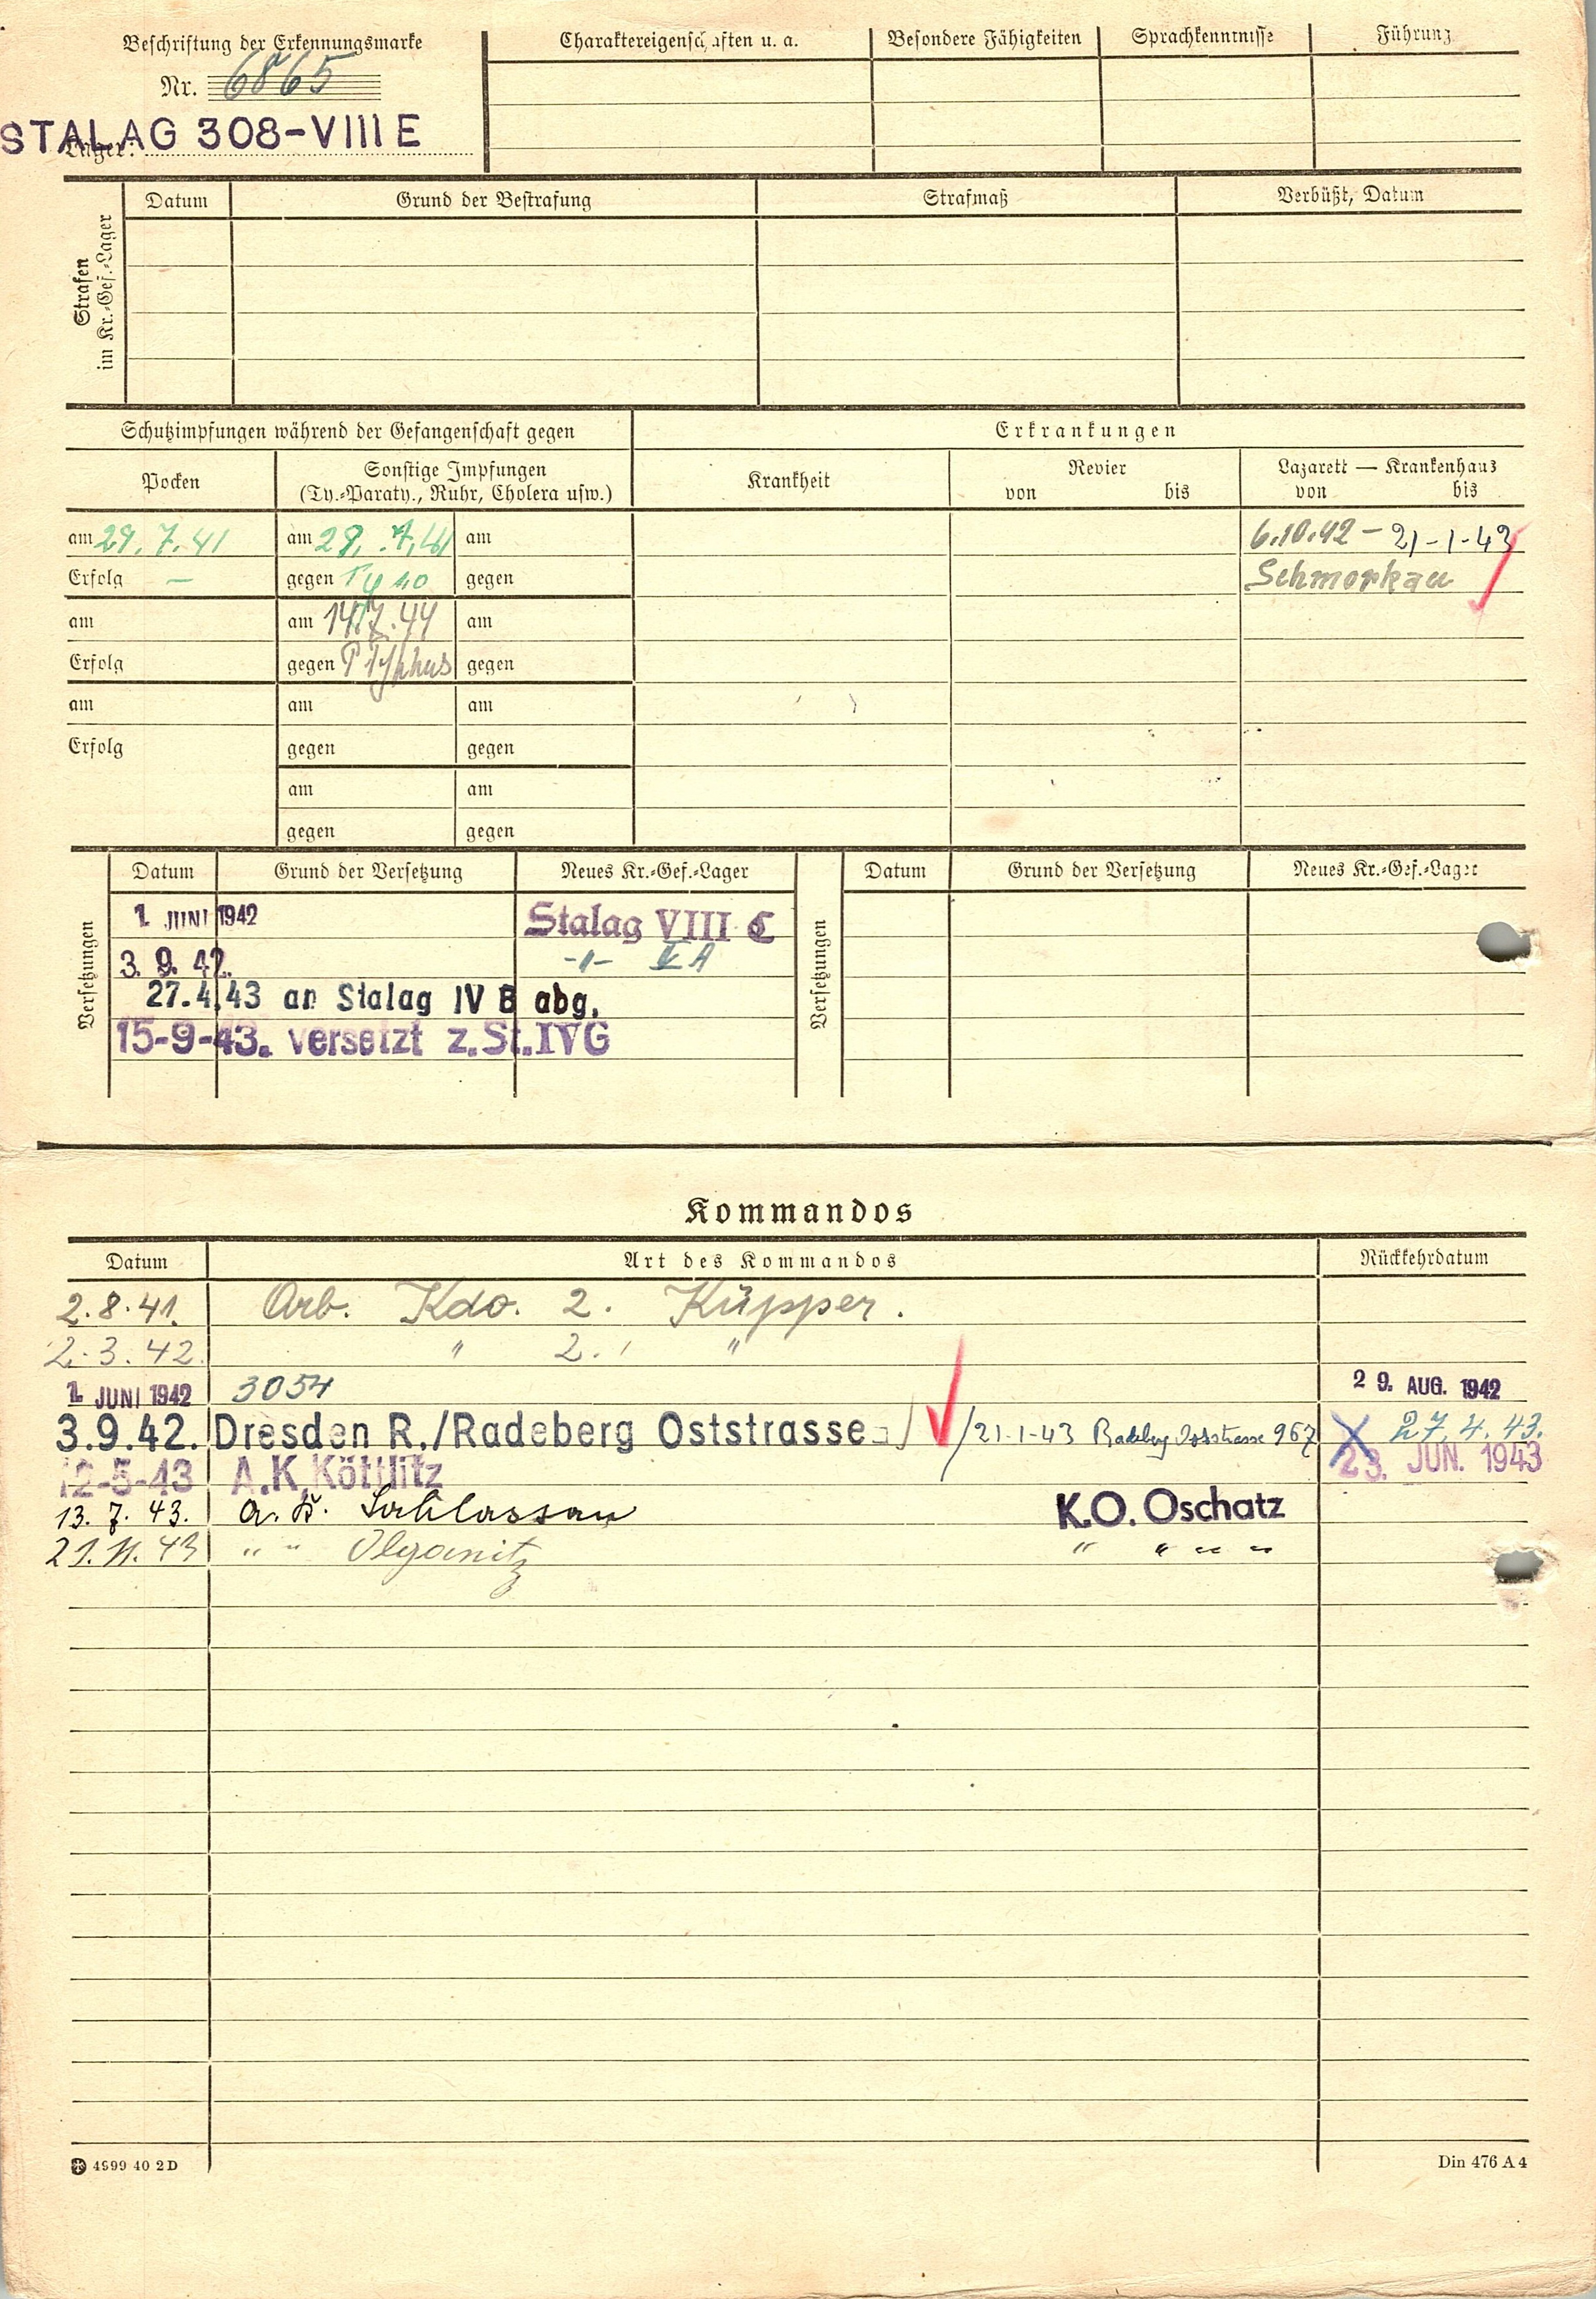 Beschriftung der Erkennungsmarke
Nr. 6865
Lager:
STALAG 308-VIII E
Charaktereigenschaften u. a.
Besondere Fähigkeiten
Sprachkenntnisse
Führung
Strafen
im Kr.-Gef.-Lager
Datum
Grund der Bestrafung
Strafmaß
Verbüßt, Datum
Schutzimpfungen während der Gefangenschaft gegen
Erkrankungen
Pocken
Sonstige Impfungen
(Ty.-Paraty., Ruhr, Cholera usw.)
Krankheit
Revier
von bis
Lazarett — Krankenhaus
von bis
am 29.7.41
am 29.7.41
am
6.10.42 - 21-1-43
Erfolg —
gegen
gegen
Schmorkau
am
am
am
Erfolg
gegen
gegen
am
am
am
Erfolg
gegen
gegen
am
am
gegen
gegen
Versetzungen
Datum
Grund der Versetzung
Neues Kr.-Gef.-Lager
Versetzungen
Datum
Grund der Versetzung
Neues Kr.-Gef.-Lager
1. JUNI 1942
Stalag VIII C
3. 9. 42.
-"- IV A
27.4.43 an Stalag IV B abg.
15-9-43. versetzt z. St. IVG
Kommandos
Datum
Art des Kommandos
Rückkehrdatum
2.8.41. Arb. Kdo. 2. Küpper.
2.3.42. " 2. "
1. JUNI 1942 3054 29. AUG. 1942
3.9.42. Dresden R./Radeberg Oststrasse /21-1-43 Radeberg Oststrasse 967 27.4.43.
12-5-43 A.K. Köttlitz 23. JUN. 1943
13. 7. 43. a. K. Sahlassan K.O. Oschatz
21.11.43 " " Olganitz " " " "
4999 40 2 D
Din 476 A 4